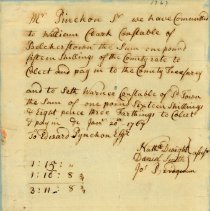 1767
Mr Pinchon Sr we have Committed
to William Cowch Constable of
Belchertown the Sum one pound
fifteen Shillings of the County rate to
Colect and pay in to the County Treasurey
and to Seth Warner Constable of
the Sum of one poun Sixteen Shillings
& Eight pence three farthings to Colect
& pay in &c Jan 20th 1767
To Edward Pynchon Esqr
Nath Dwight
Daniel Smith
Jo
1 : 15 : "
1 : 16 : 8 3/4
3 : 11 : 8 3/4